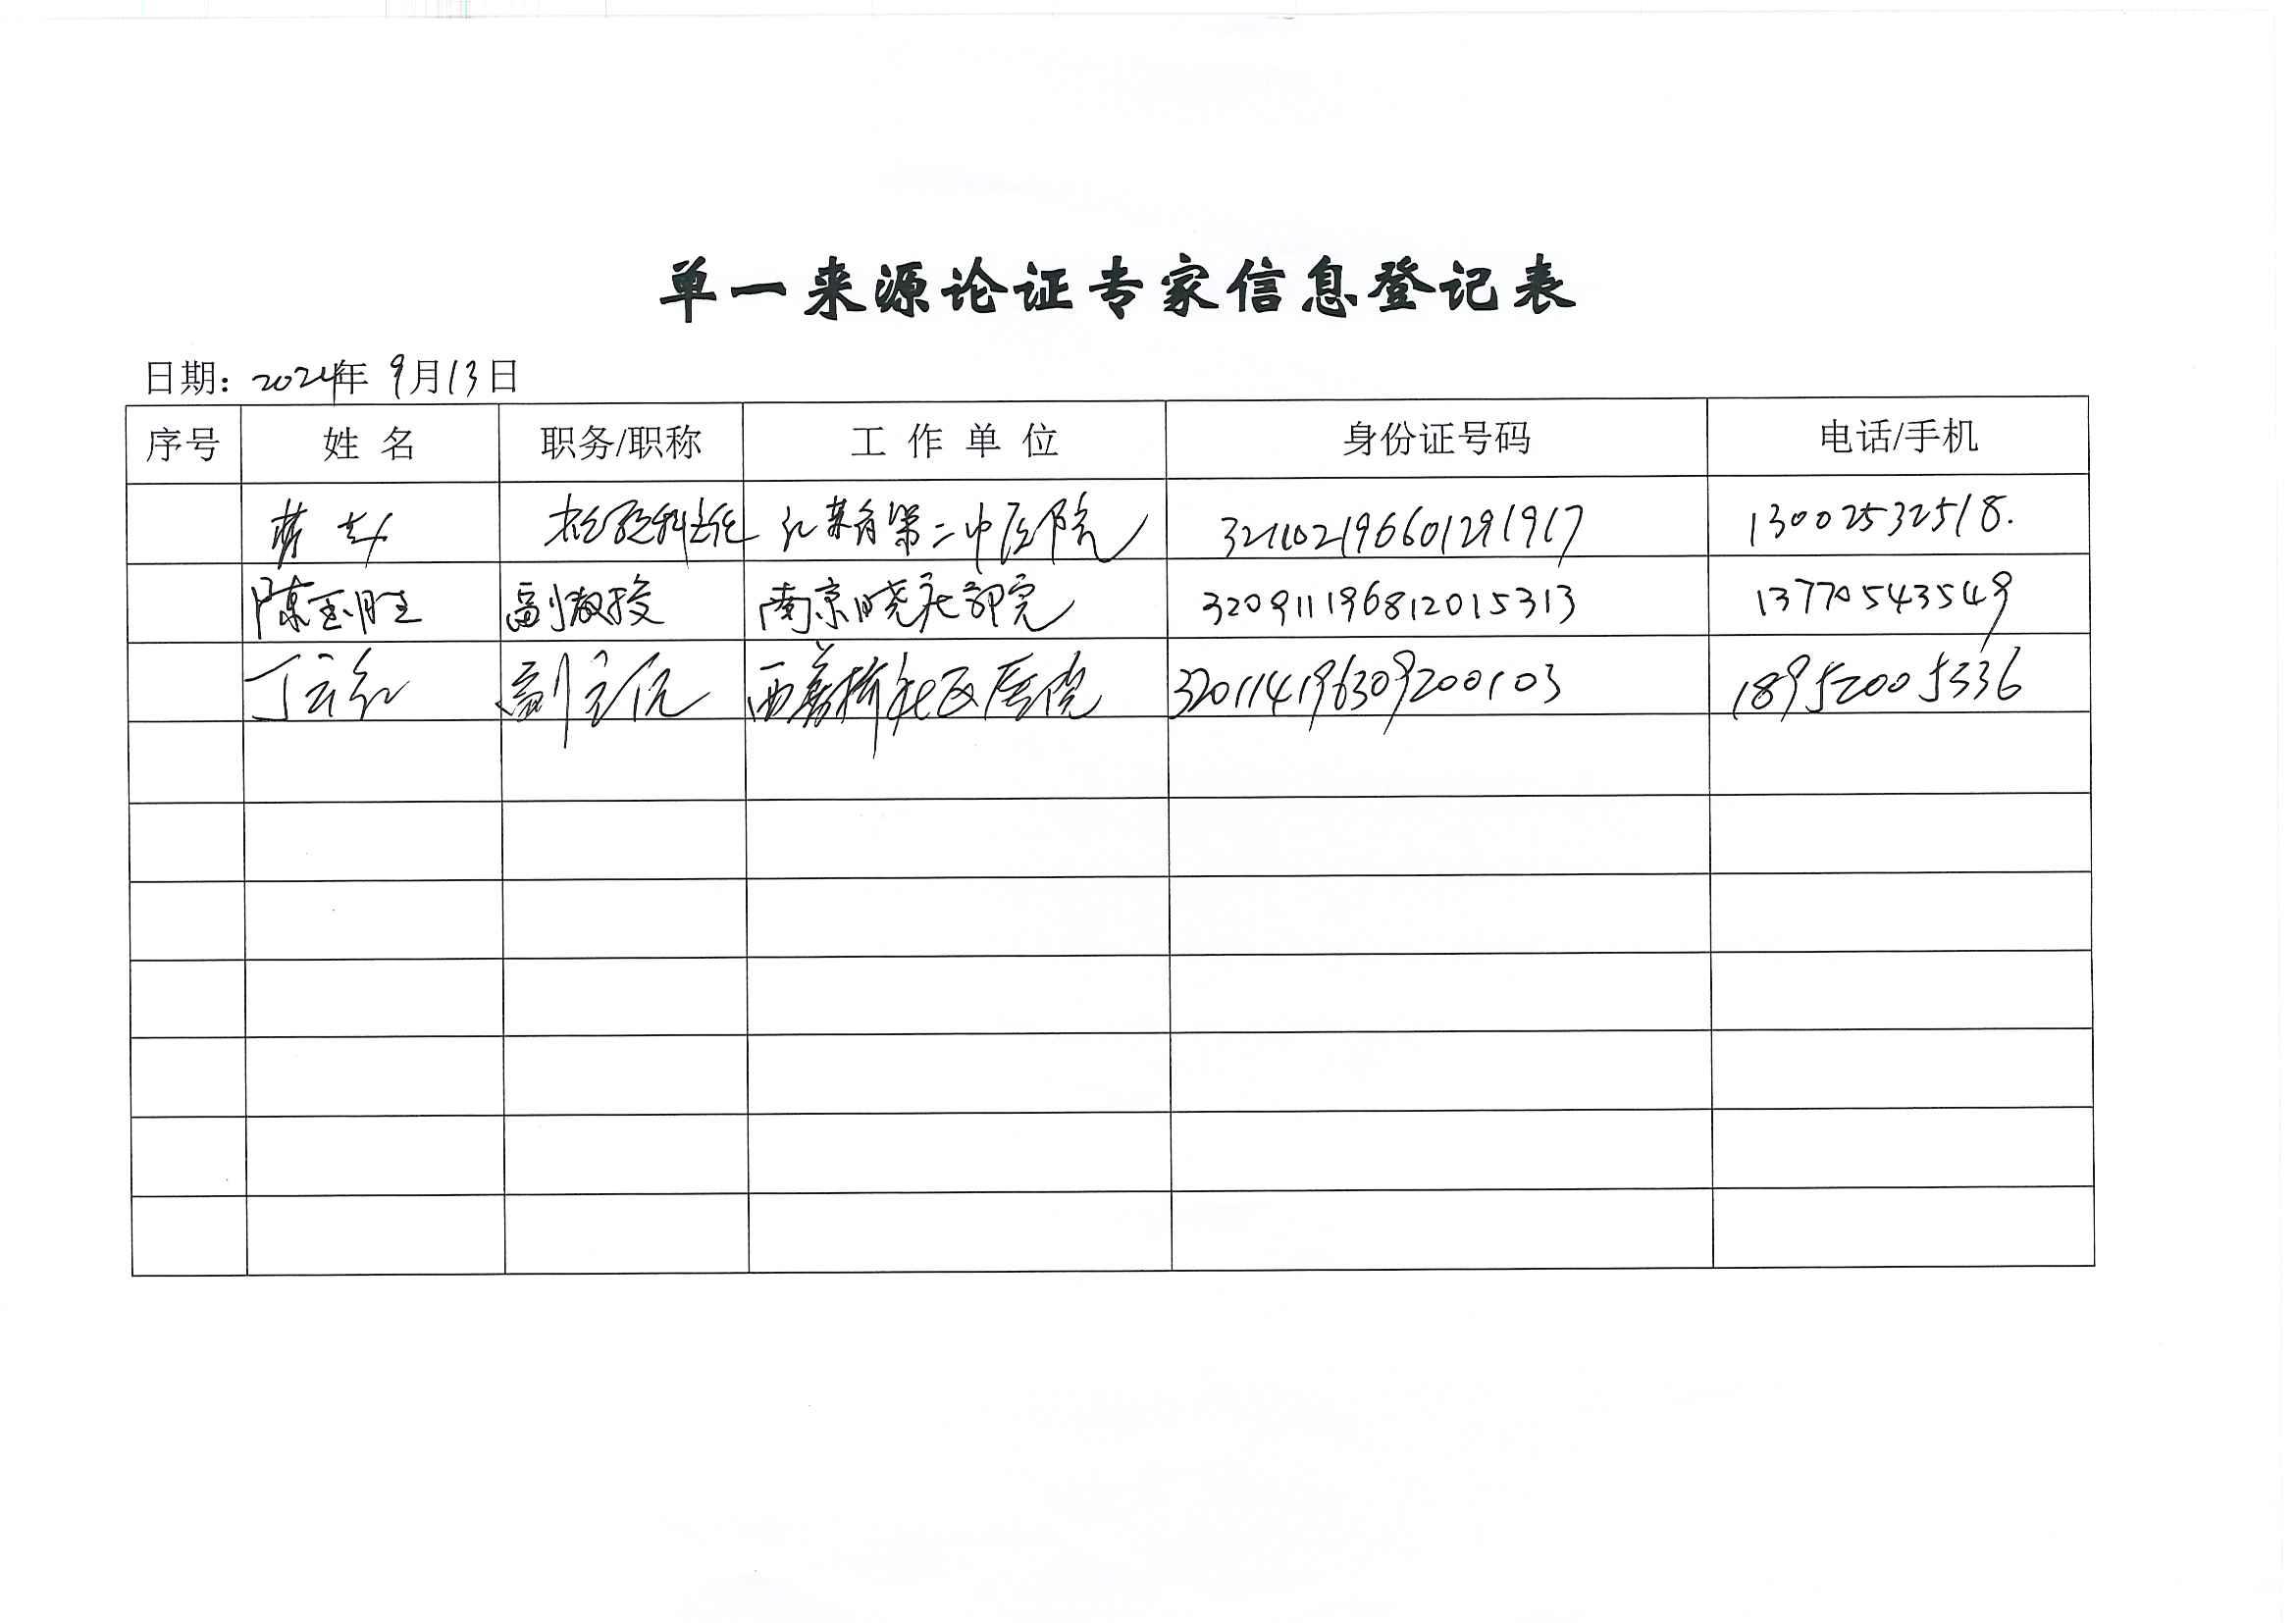 单一来源论证专家信息登记表
日期：2024年 9月13日
序号 姓名 职务/职称 工作单位 身份证号码 电话/手机
检验科主任 江苏省第二中医院 321102196601291917 13002532518.
陈玉胜 副教授 南京晓庄学院 320911196812015313 13770543549
丁云红 副主任 西善桥社区医院 320114196309200103 18952005336